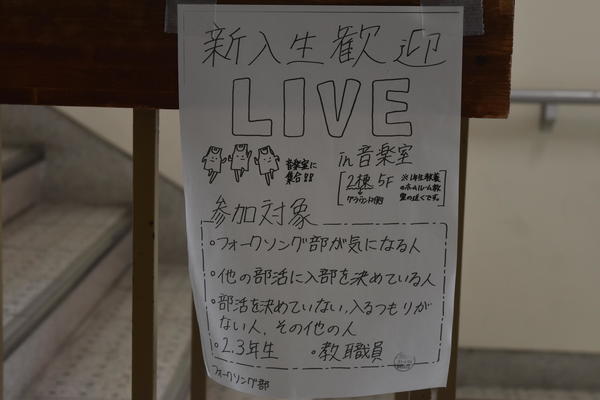 新入生歓迎
LIVE
音楽室に
集合!!
in 音楽室
2棟 5F
グラウンド側
※1年生教養
のホームルーム教
室の近くです。
参加対象
・フォークソング部が気になる人
・他の部活に入部を決めている人
・部活を決めていない、入るつもりが
ない人、その他の人
・2.3年生 ・教職員
フォークソング部